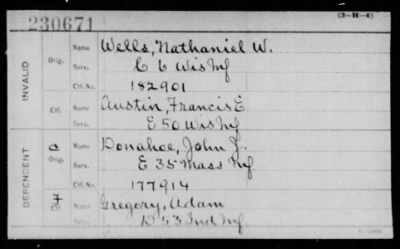 230671
(3-H-4)
INVALID
Orig.
Name Wells, Nathaniel W.
Serv. C 6 Wis Inf
Ctf. No. 182901
Ctf.
Name Austin, Francis E
Serv. E 50 Wis Inf
DEPENDENT
C
Orig.
Name Donahoe, John J.
Serv. E 35 Mass Inf
Ctf. No. 177914
Ctf.
Name Gregory, Adam
Serv. D 53 Ind Inf